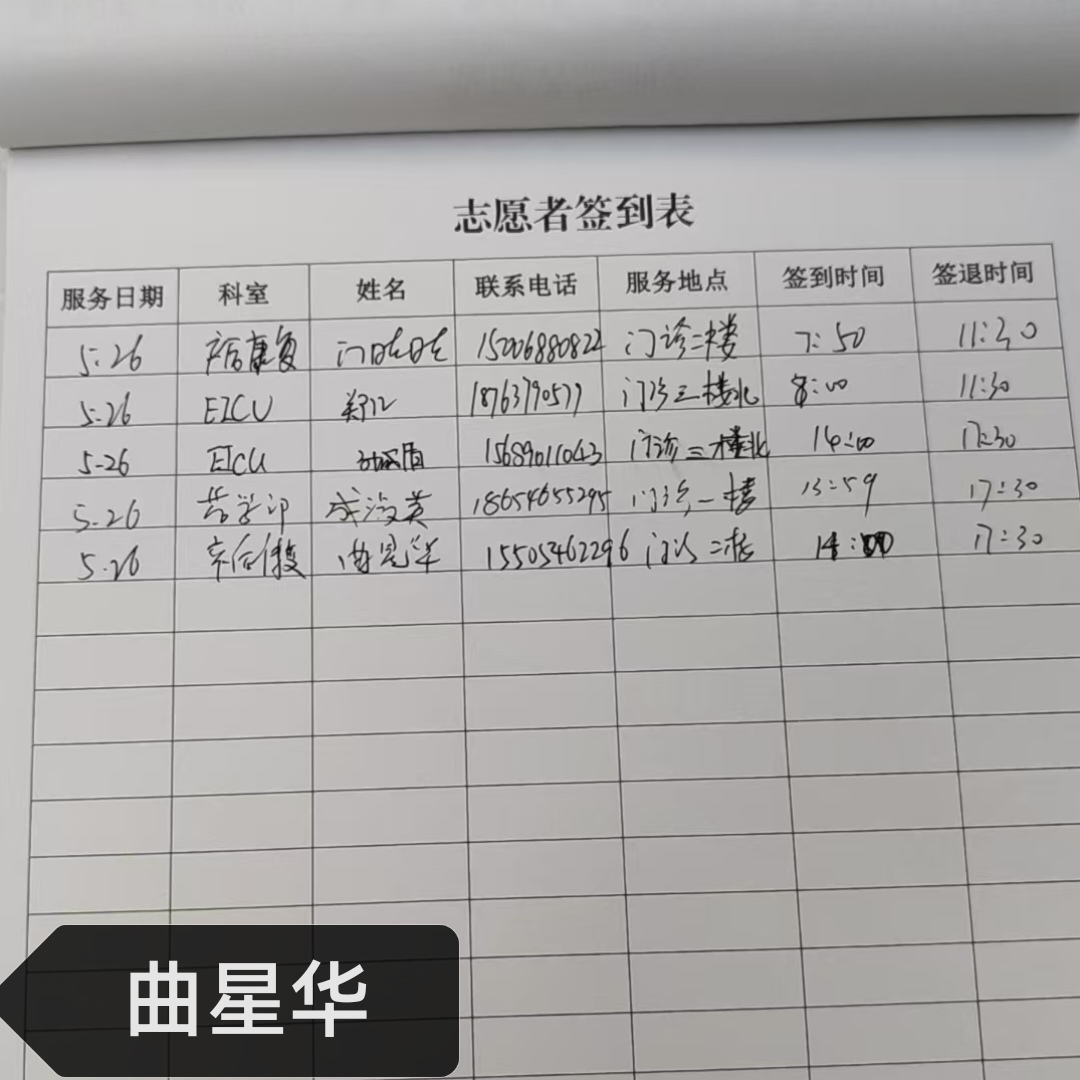 志愿者签到表
服务日期 科室 姓名 联系电话 服务地点 签到时间 签退时间
5.26 产后康复 门晓晓 15006880822 门诊二楼 7:50 11:30
5.26 EICU 郑 18763790577 门诊三楼北 8:00 11:30
5.26 EICU 15689011043 门诊三楼北 14:00 17:30
5.26 药学部 成汝英 18654655295 门诊一楼 13:59 17:30
5.26 产后康复 曲星华 15505462296 门诊二楼 14:00 17:30
曲星华